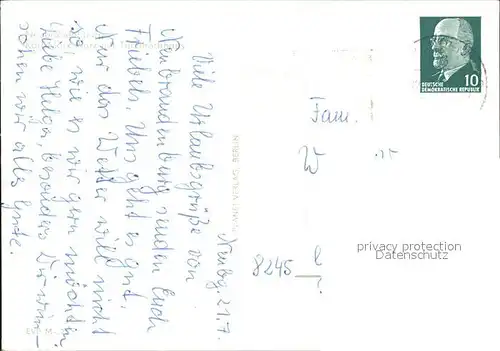 Neubg. 21.7.
Viele Urlaubsgrüße von
Neubrandenburg senden Euch
Thiebels. Uns geht es gut,
Nur das Wetter will nicht
so wie es wir gern möchten.
Liebe Helga, besonders Dir wün-
schen wir alles Gute.
Fam.
W
8245
10
DEUTSCHE
DEMOKRATISCHE REPUBLIK
privacy protection
Datenschutz